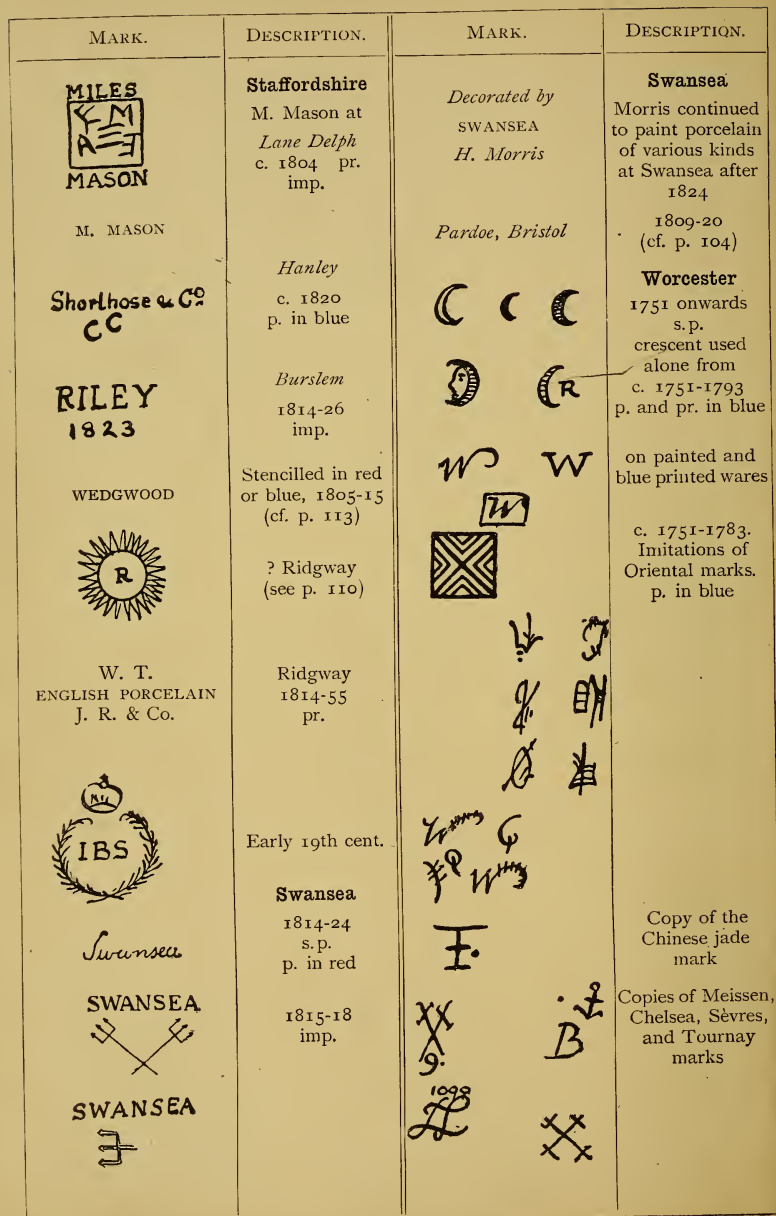 MARK.
DESCRIPTION.
MILES
MASON
Staffordshire
M. Mason at
Lane Delph
c. 1804 pr.
imp.
M. MASON
Shorthose & Co
CC
Hanley
c. 1820
p. in blue
RILEY
1823
Burslem
1814-26
imp.
WEDGWOOD
Stencilled in red
or blue, 1805-15
(cf. p. 113)
R
? Ridgway
(see p. 110)
W. T.
ENGLISH PORCELAIN
J. R. & Co.
Ridgway
1814-55
pr.
IBS
Early 19th cent.
Swansea
Swansea
1814-24
s.p.
p. in red
SWANSEA
1815-18
imp.
SWANSEA
MARK.
DESCRIPTION.
Decorated by
SWANSEA
H. Morris
Swansea
Morris continued
to paint porcelain
of various kinds
at Swansea after
1824
Pardoe, Bristol
1809-20
(cf. p. 104)
Worcester
1751 onwards
s.p.
crescent used
alone from
c. 1751-1793
p. and pr. in blue
R
W W
on painted and
blue printed wares
W
c. 1751-1783.
Imitations of
Oriental marks.
p. in blue
Copy of the
Chinese jade
mark
Copies of Meissen,
Chelsea, Sèvres,
and Tournay
marks
9.
B